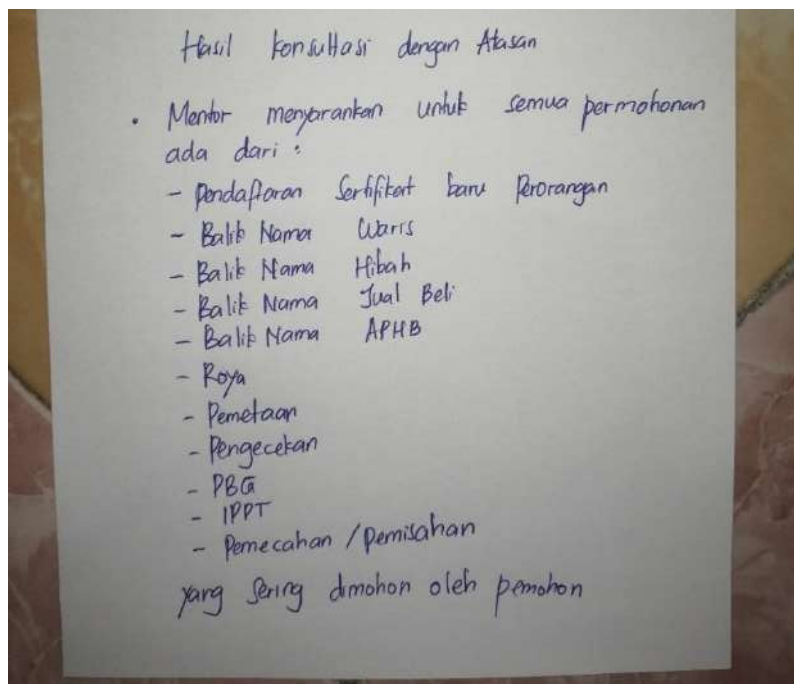 Hasil konsultasi dengan Atasan
• Mentor menyarankan untuk semua permohonan
ada dari :
- Pendaftaran Sertifikat baru Perorangan
- Balik Nama Waris
- Balik Nama Hibah
- Balik Nama Jual Beli
- Balik Nama APHB
- Roya
- Pemetaan
- Pengecekan
- PBG
- IPPT
- Pemecahan / Pemisahan
yang sering dimohon oleh pemohon